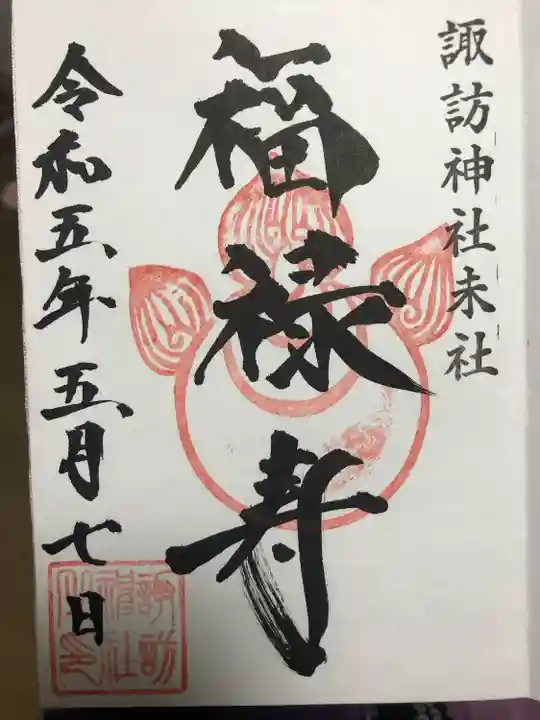 諏訪神社末社
福禄寿
令和五年五月七日
諏訪
神社